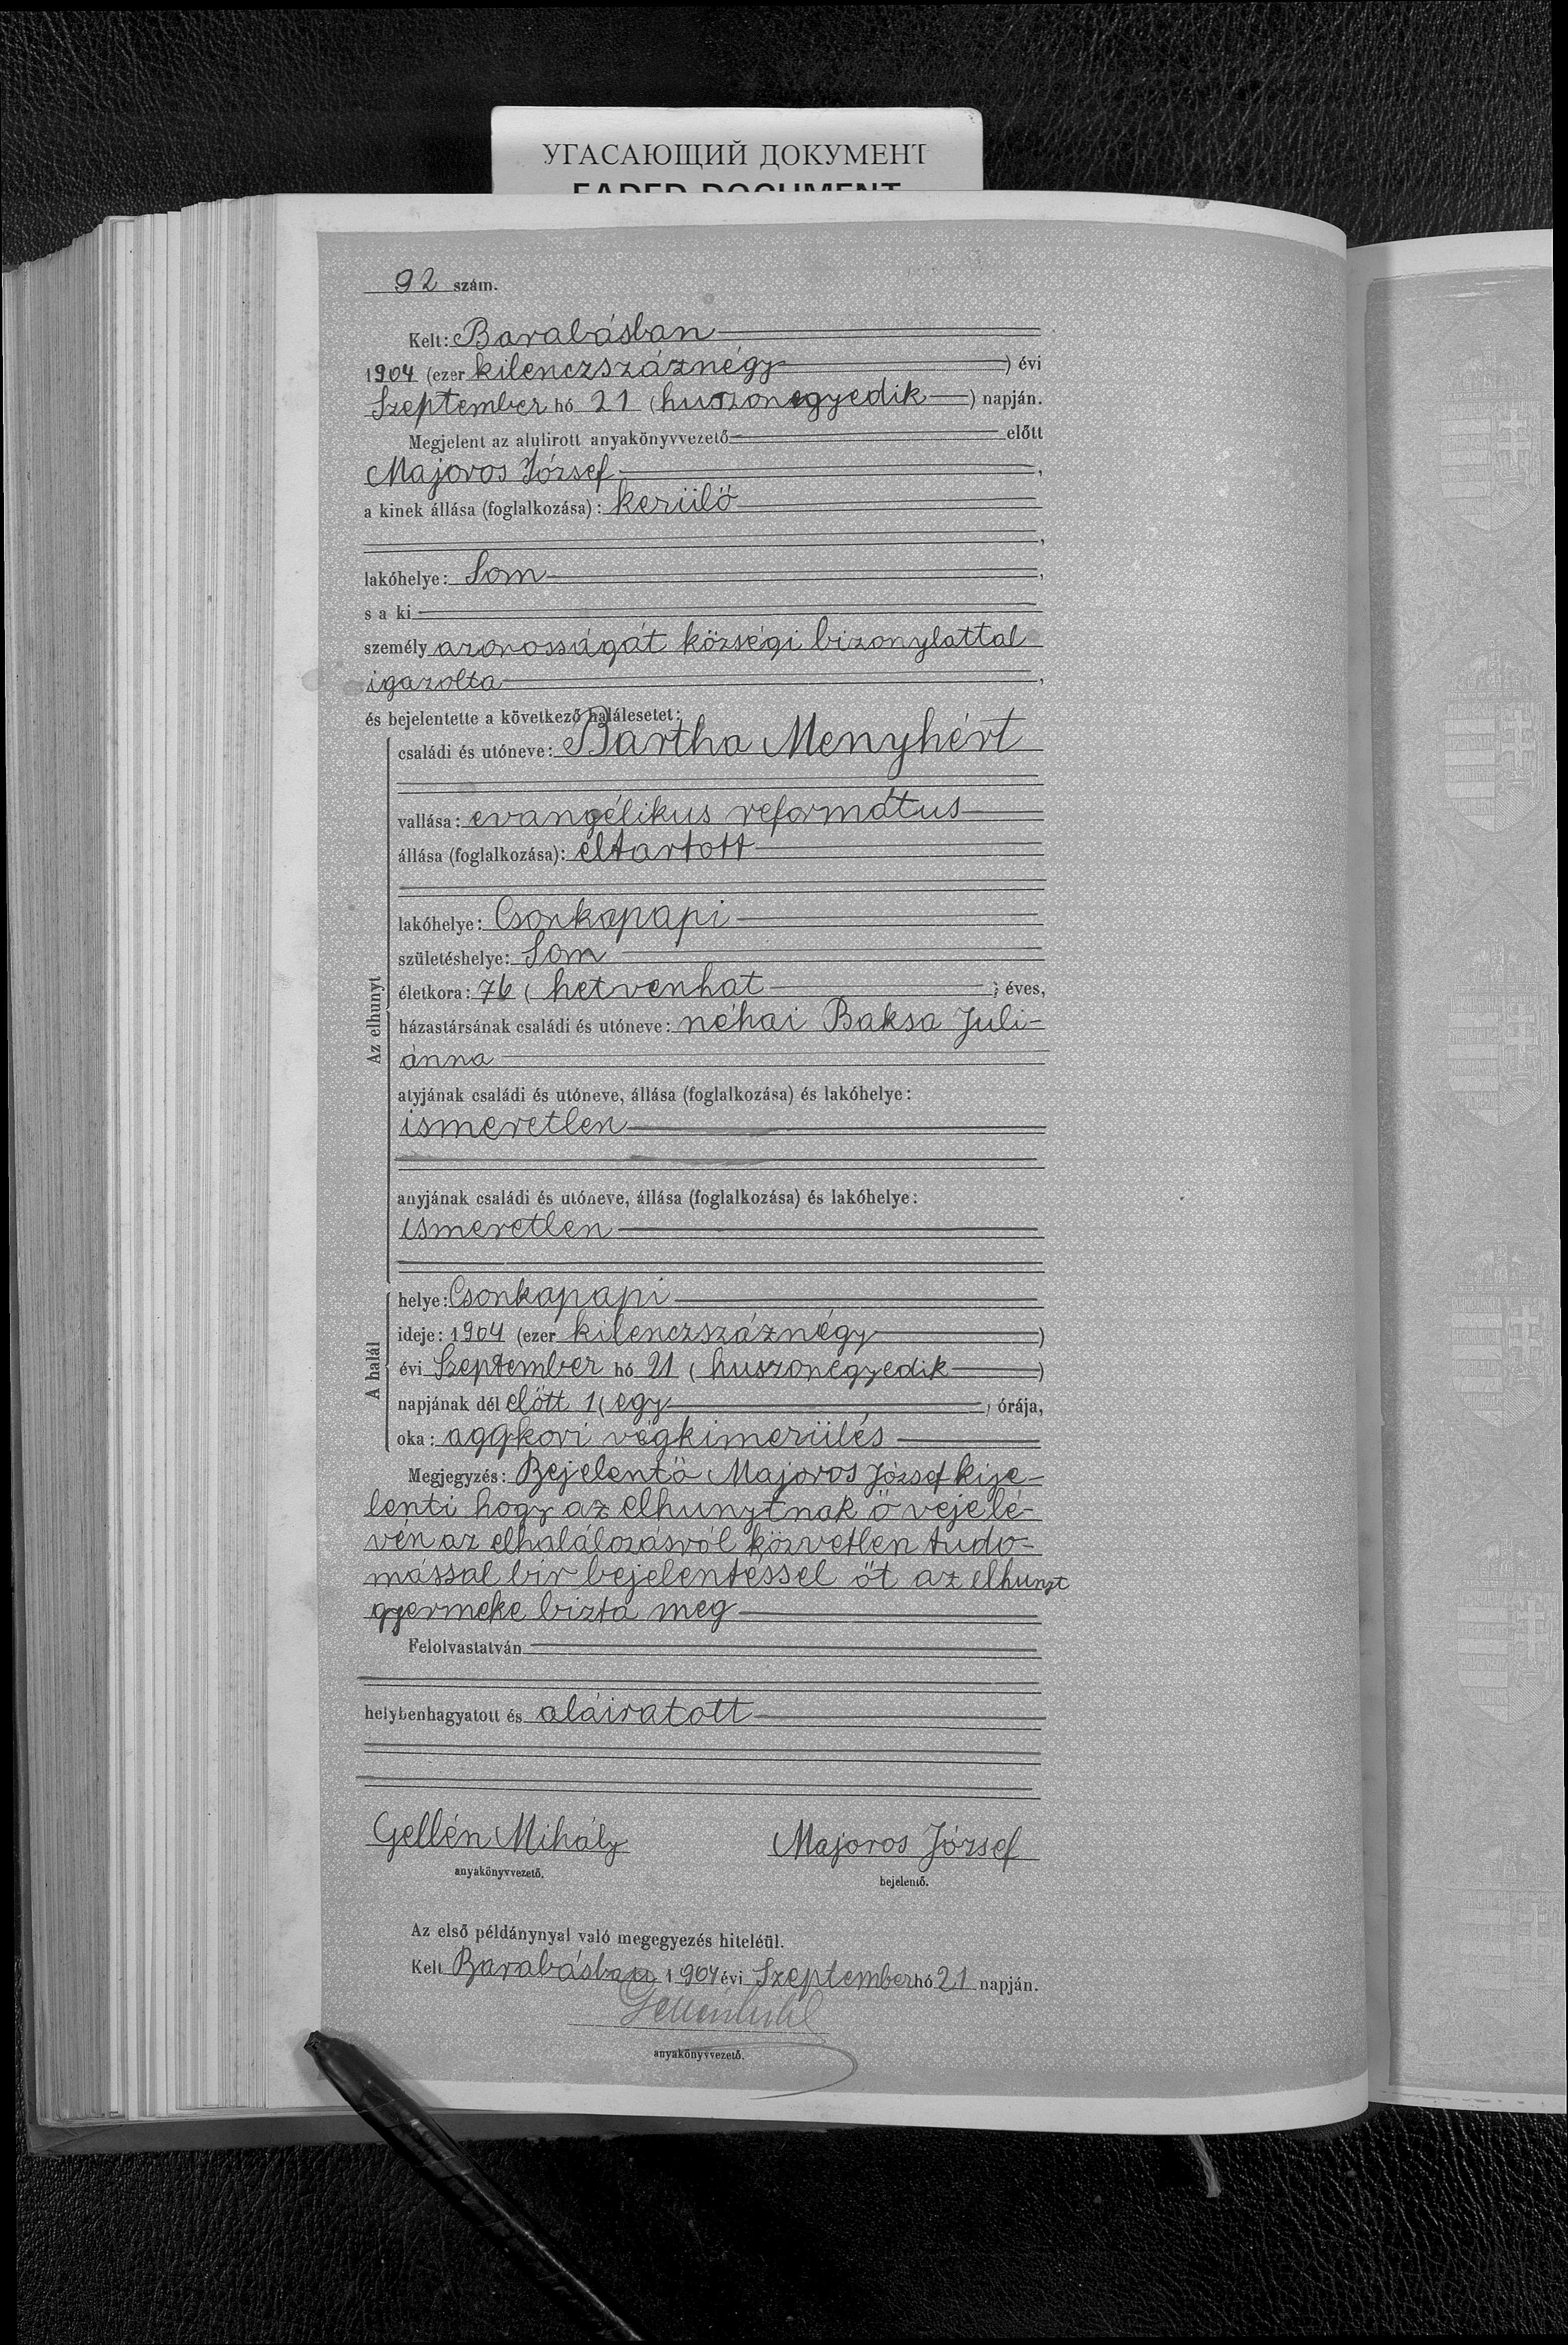 УГАСАЮЩИЙ ДОКУМЕНТ
FADED DOCUMENT
92 szám.
Kelt: Barabásban
1904 (ezer kilenczszáznégy) évi
Szeptember hó 21 (huszonegyedik) napján.
Megjelent az alulirott anyakönyvvezető előtt
Majoros József,
a kinek állása (foglalkozása): kerülő
,
lakóhelye: Som,
s a ki
személy azonosságát községi bizonylattal
igazolta,
és bejelentette a következő halálesetet:
Az elhunyt
családi és utóneve: Bartha Menyhért
vallása: evangélikus református
állása (foglalkozása): eltartott
lakóhelye: Csonkapapi
születéshelye: Som
életkora: 76 (hetvenhat) éves,
házastársának családi és utóneve: néhai Baksa Juli-
ánna
atyjának családi és utóneve, állása (foglalkozása) és lakóhelye:
ismeretlen
anyjának családi és utóneve, állása (foglalkozása) és lakóhelye:
ismeretlen
A halál
helye: Csonkapapi
ideje: 1904 (ezer kilenczszáznégy)
évi Szeptember hó 21 (huszonegyedik)
napjának dél előtt 1 (egy) órája,
oka: aggkori végkimerülés
Megjegyzés: Bejelentő Majoros József kije-
lenti hogy az elhunytnak ő veje lé-
vén az elhalálozásról közvetlen tudo-
mással bir bejelentéssel őt az elhunyt
gyermeke bizta meg
Felolvastatván
helybenhagyatott és aláiratott
Gellén Mihály
anyakönyvvezető.
Majoros József
bejelentő.
Az első példánynyal való megegyezés hiteléül.
Kelt Barabásban 1904 évi Szeptember hó 21 napján.
anyakönyvvezető.